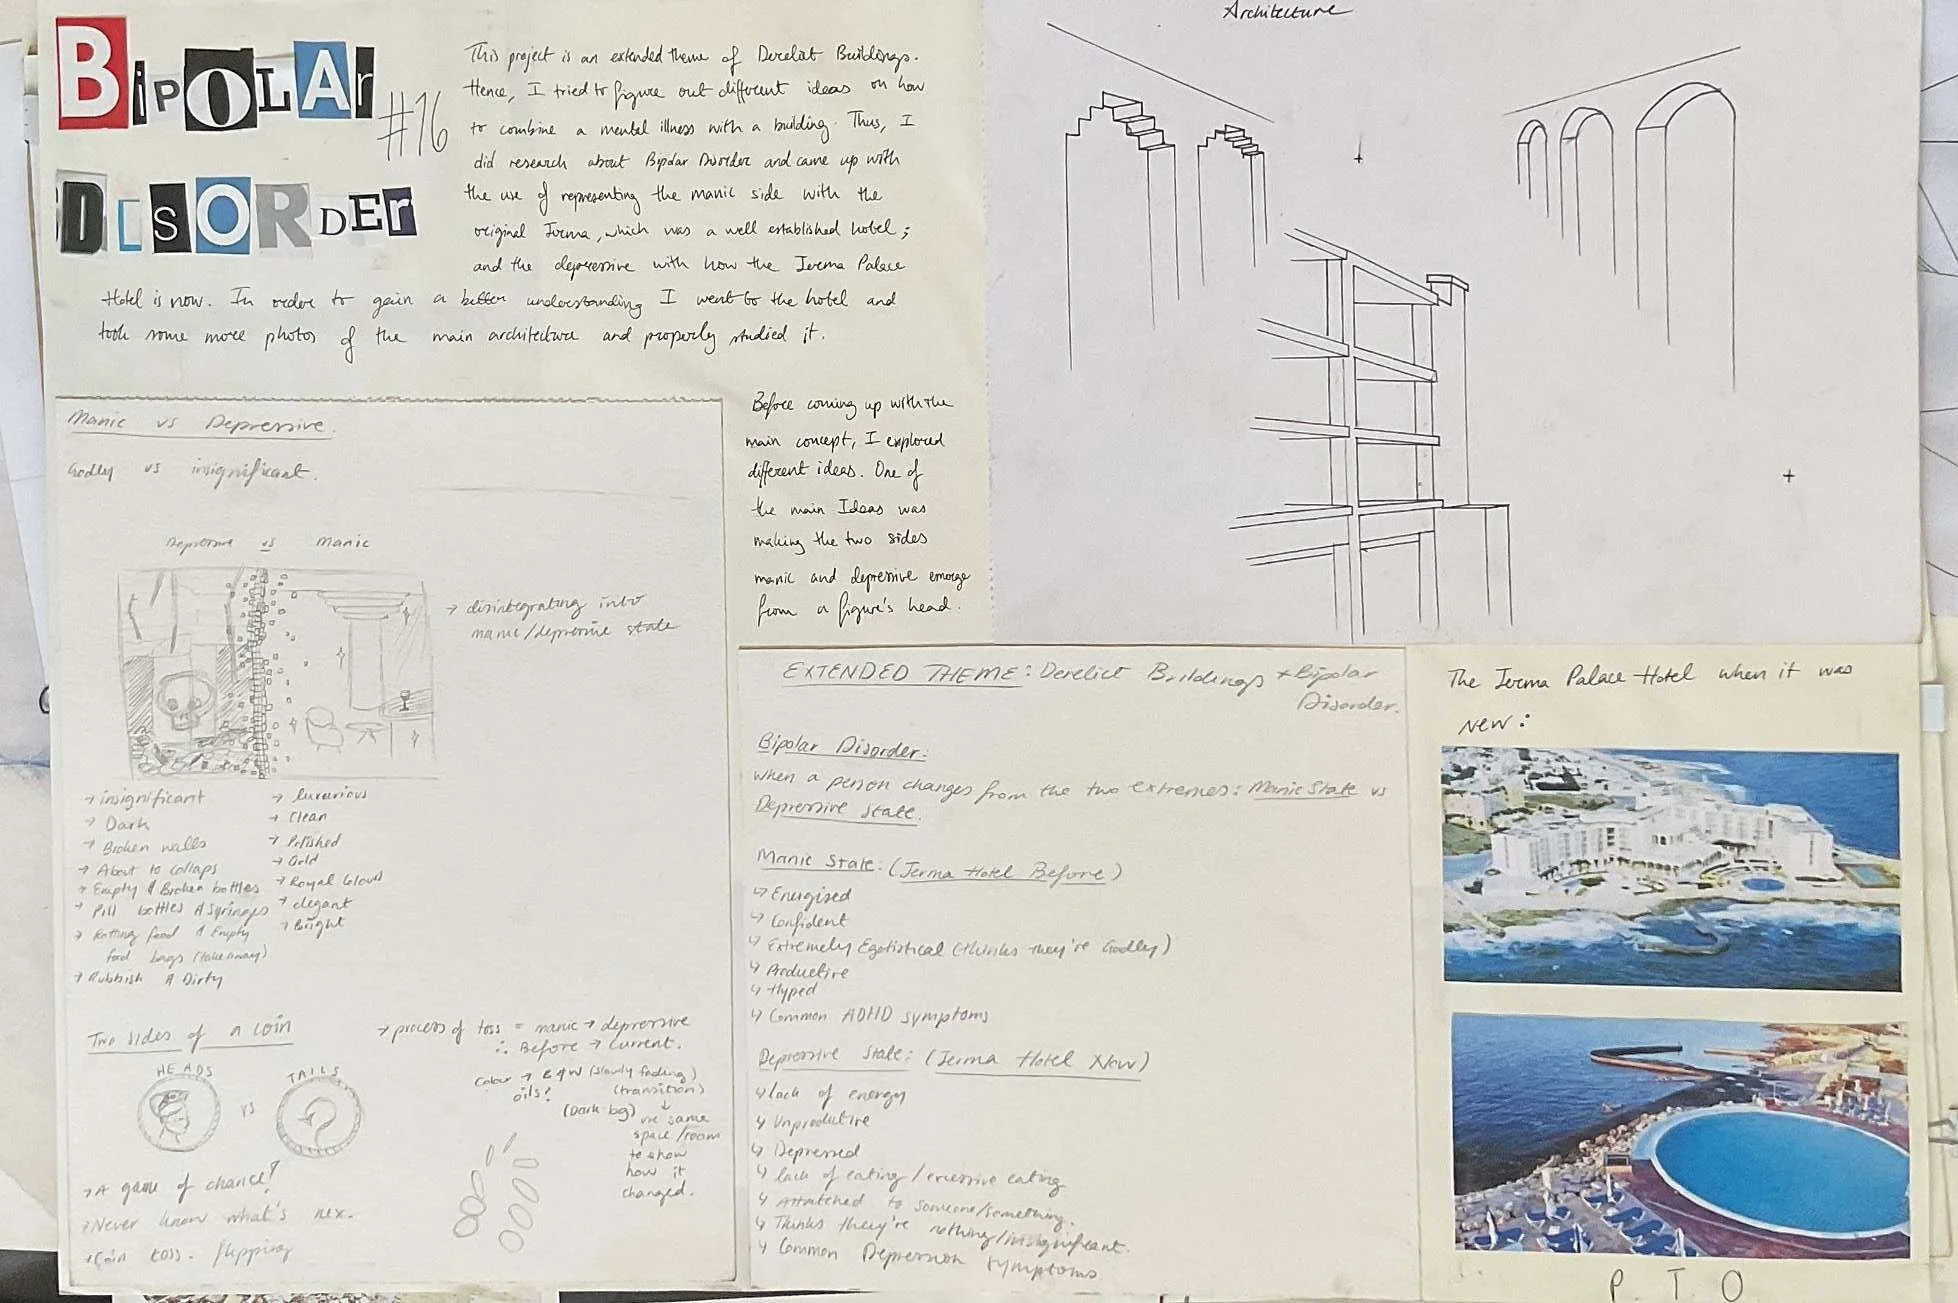 BipOLAr
DISORDEr
#16
This project is an extended theme of Derelict Buildings.
Hence, I tried to figure out different ideas on how
to combine a mental illness with a building. Thus, I
did research about Bipolar Disorder and came up with
the use of representing the manic side with the
original Jerma, which was a well established hotel;
and the depressive with how the Jerma Palace
Hotel is now. In order to gain a better understanding I went to the hotel and
took some more photos of the main architecture and properly studied it.
Architecture
Manic vs Depressive.
Godly vs insignificant.
Depressive vs Manic
→ disintegrating into
manic/depressive state
→ insignificant
→ Dark
→ Broken walls
→ About to collaps
→ Empty & Broken bottles
→ Pill bottles & Syringes
→ Rotting food & Empty
food bags (takeaway)
→ Rubbish & Dirty
→ luxurious
→ Clean
→ Polished
→ Gold
→ Royal Colours
→ elegant
→ Bright
Two sides of a coin
HEADS
vs
TAILS
→ A game of chance?
→ Never know what's nex.
→ Coin toss. flipping
→ process of toss = manic → depressive
∴ Before → Current.
Colour → B&W (slowly fading)
oils? (transition)
(Dark bg) ↓
use same
space/room
to show
how it
changed.
Before coming up with the
main concept, I explored
different ideas. One of
the main Ideas was
making the two sides
manic and depressive emerge
from a figure's head.
EXTENDED THEME: Derelict Buildings + Bipolar
Disorder.
Bipolar Disorder:
when a person changes from the two extremes: Manic State vs
Depressive State.
Manic State: (Jerma Hotel Before)
↳ Energised
↳ Confident
↳ Extremely Egotistical (thinks they're Godley)
↳ Productive
↳ Hyped
↳ Common ADHD symptoms
Depressive State: (Jerma Hotel Now)
↳ lack of energy
↳ Unproductive
↳ Depressed
↳ lack of eating/excessive eating
↳ Attatched to someone/something.
↳ Thinks they're nothing/insignificant.
↳ Common Depression symptoms
The Jerma Palace Hotel when it was
NEW:
P.T.O